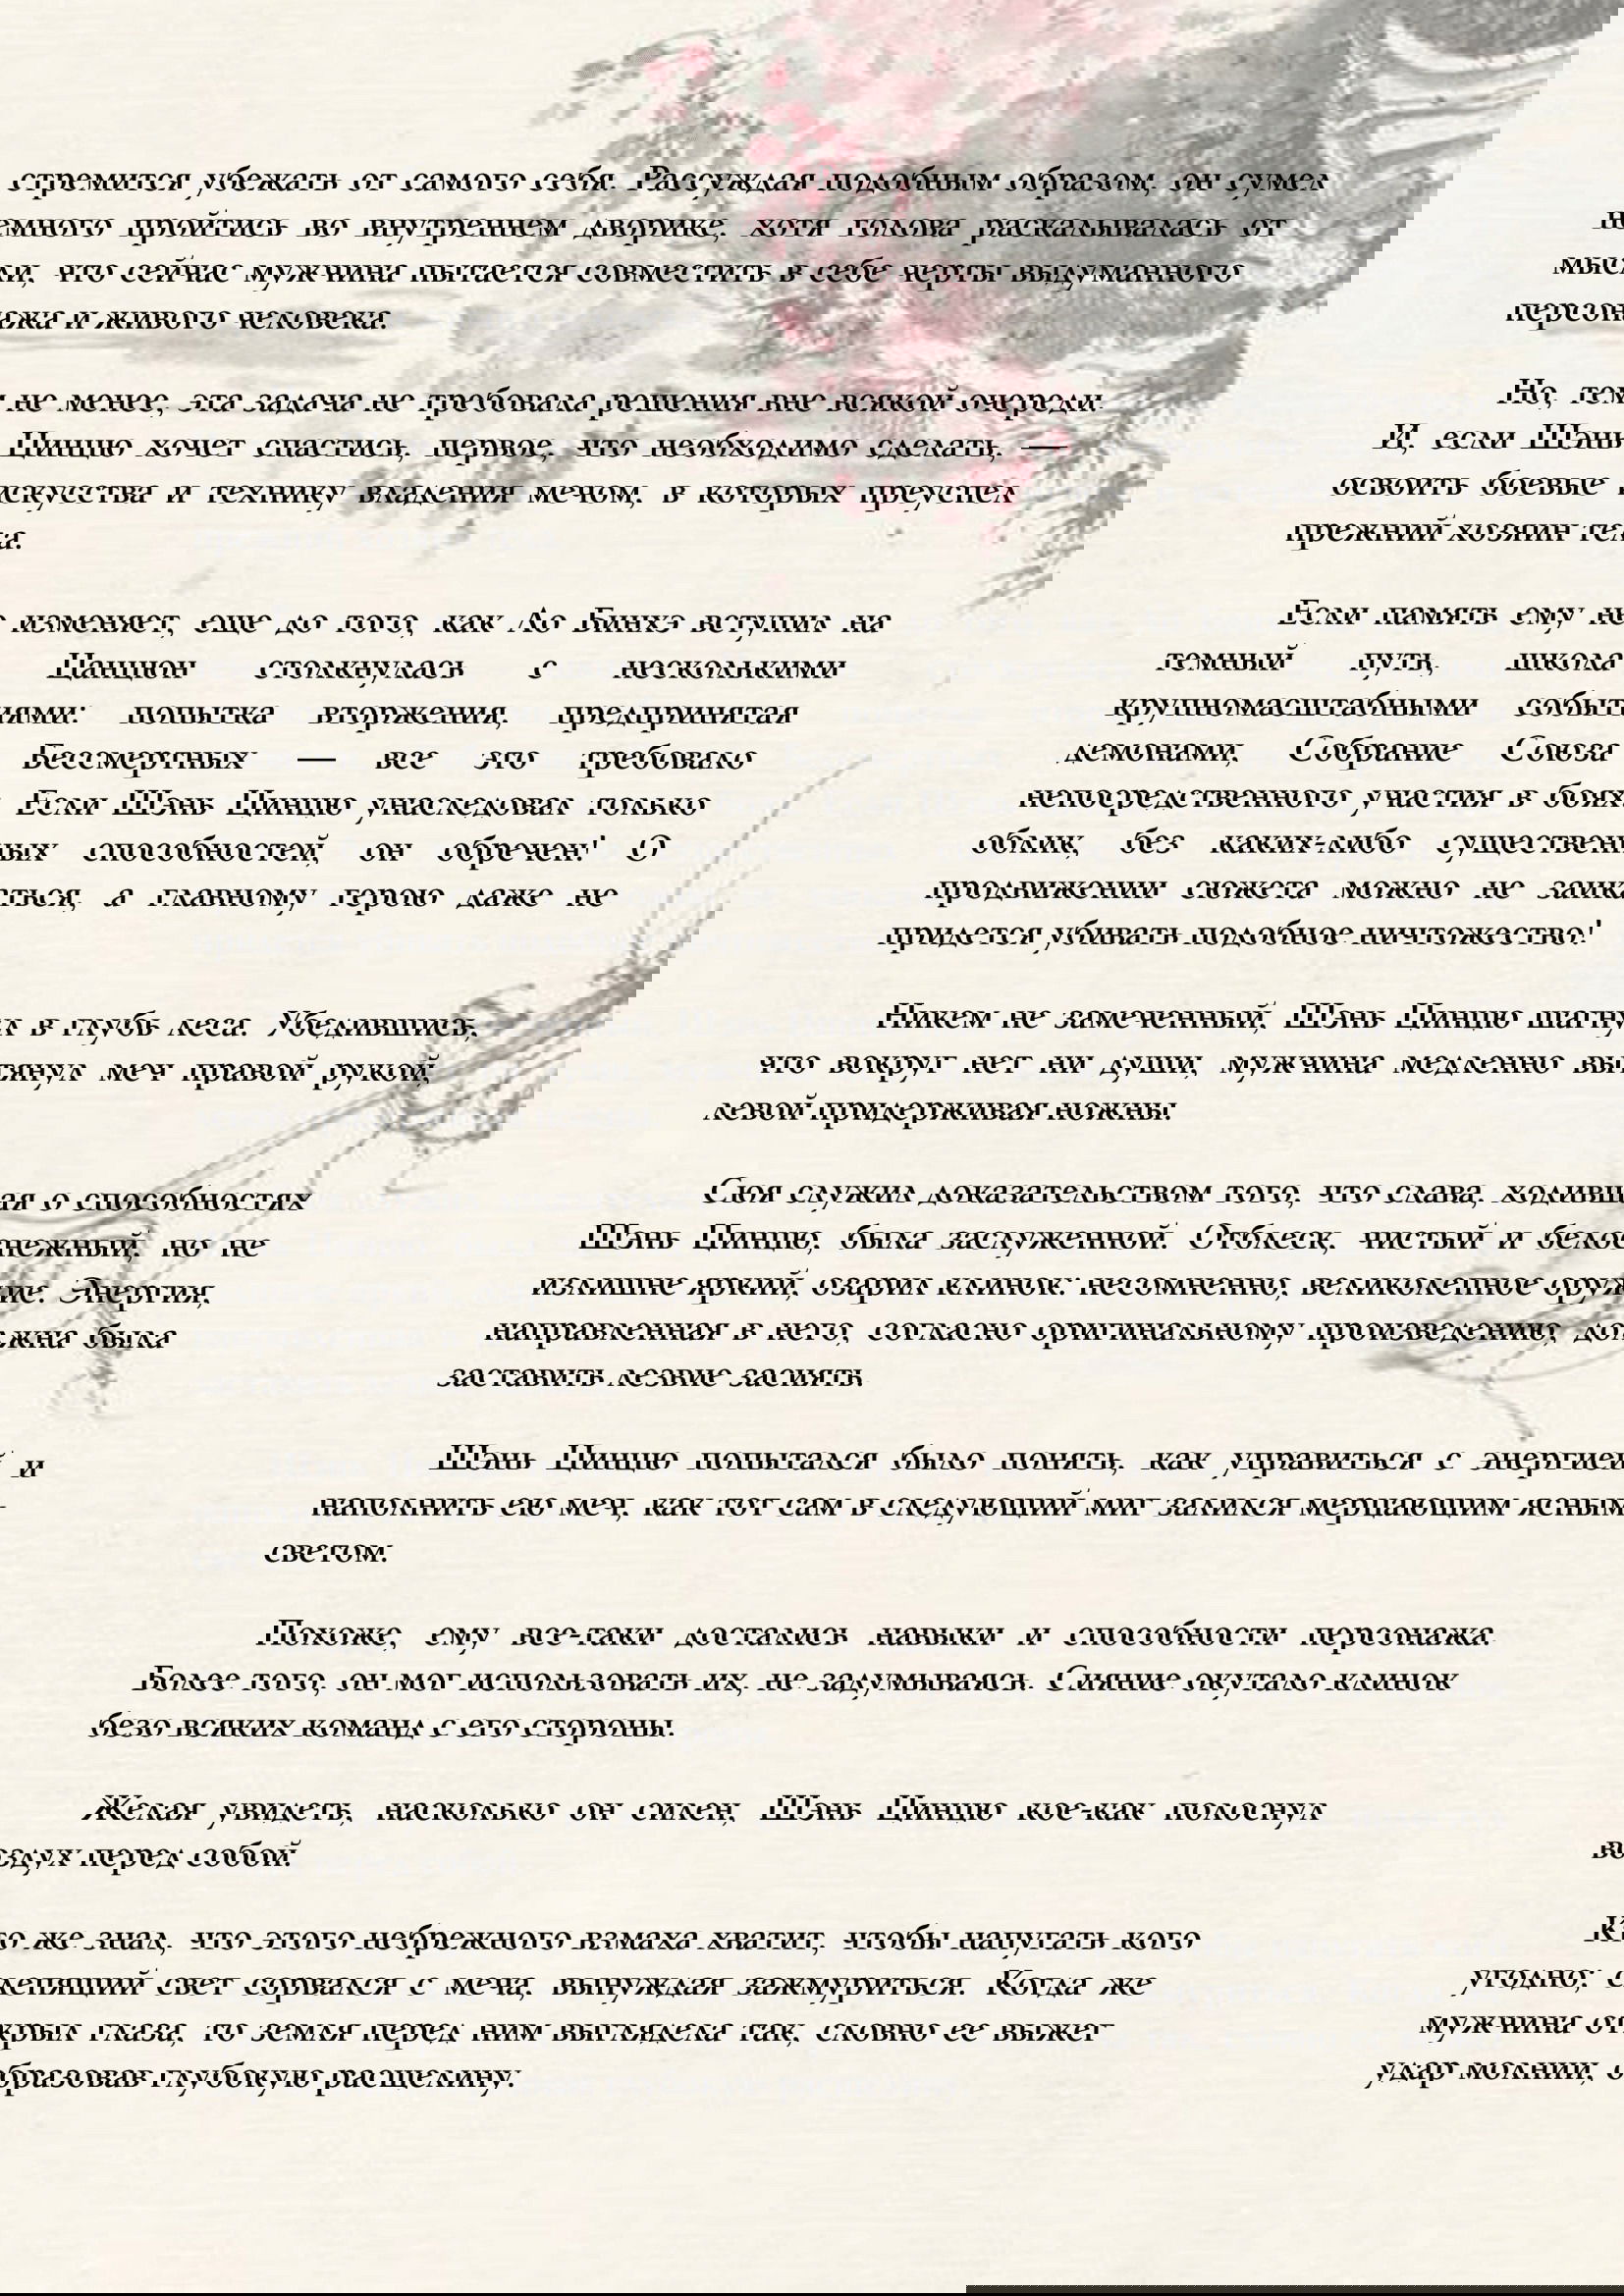 стремится убежать от самого себя. Рассуждая подобным образом, он сумел
немного пройтись во внутреннем дворике, хотя голова раскалывалась от
мысли, что сейчас мужчина пытается совместить в себе черты выдуманного
персонажа и живого человека.
Но, тем не менее, эта задача не требовала решения вне всякой очереди.
И, если Шэнь Цинцю хочет спастись, первое, что необходимо сделать, —
освоить боевые искусства и технику владения мечом, в которых преуспел
прежний хозяин тела.
Если память ему не изменяет, еще до того, как Ло Бинхэ вступил на
темный путь, школа Цанцюн столкнулась с несколькими
крупномасштабными событиями: попытка вторжения, предпринятая
демонами, Собрание Союза Бессмертных — все это требовало
непосредственного участия в боях. Если Шэнь Цинцю унаследовал только
облик, без каких-либо существенных способностей, он обречен! О
продвижении сюжета можно не заикаться, а главному герою даже не
придется убивать подобное ничтожество!
Никем не замеченный, Шэнь Цинцю шагнул в глубь леса. Убедившись,
что вокруг нет ни души, мужчина медленно вытянул меч правой рукой,
левой придерживая ножны.
Сюя служил доказательством того, что слава, ходившая о способностях
Шэнь Цинцю, была заслуженной. Отблеск, чистый и белоснежный, но не
излишне яркий, озарил клинок: несомненно, великолепное оружие. Энергия,
направленная в него, согласно оригинальному произведению, должна была
заставить лезвие засиять.
Шэнь Цинцю попытался было понять, как управиться с энергией и
наполнить ею меч, как тот сам в следующий миг залился мерцающим ясным
светом.
Похоже, ему все-таки достались навыки и способности персонажа.
Более того, он мог использовать их, не задумываясь. Сияние окутало клинок
безо всяких команд с его стороны.
Желая увидеть, насколько он силен, Шэнь Цинцю кое-как полоснул
воздух перед собой.
Кто же знал, что этого небрежного взмаха хватит, чтобы напугать кого
угодно; слепящий свет сорвался с меча, вынуждая зажмуриться. Когда же
мужчина открыл глаза, то земля перед ним выглядела так, словно ее выжег
удар молнии, образовав глубокую расщелину.